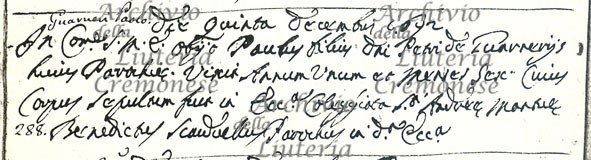 Guarneri Paolo. Die quinta Decembris 1692
In Com.e S. M. E. obijt Paulus filius Dni Petri de Guarnerijs
huius Parochiæ. Vixit Annum Unum et Menses sex. Cuius
Corpus sepultum fuit in Ecc.a Collegiata S.ti Andreæ Mantuæ
288. Benedictus Parochus in d.a Ecc.a
Archivio
della
Liuteria
Cremonese
Archivio
della
Liuteria
Cremonese
Archivio
della
Liuteria